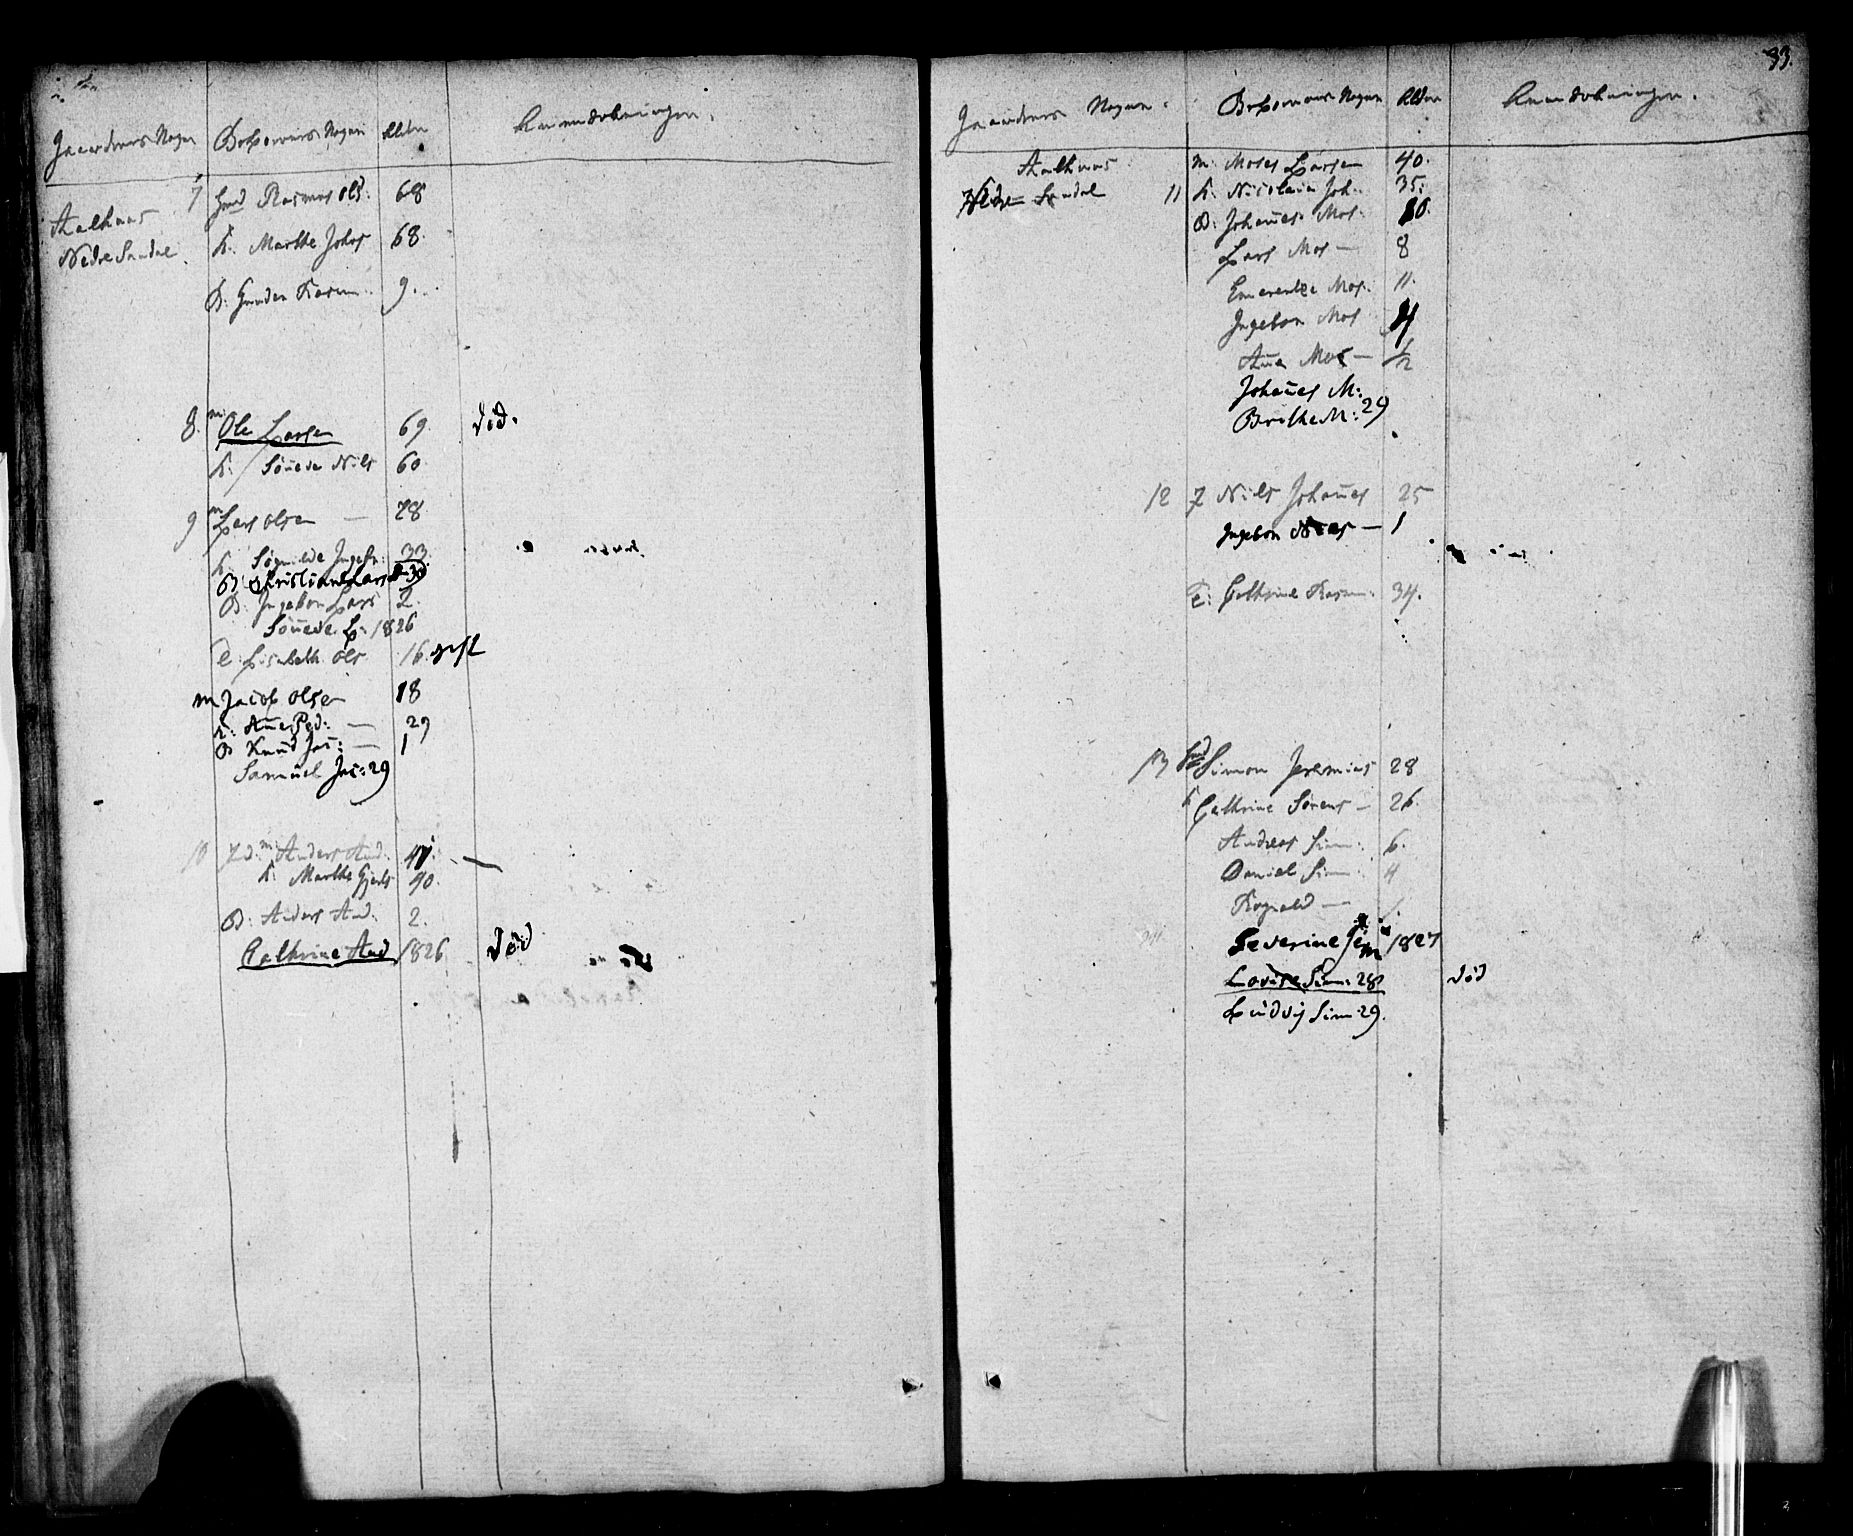 Gaardenes Nogen Beboernes Nogen Alder Anmærkninger.
7 Gmd Rasmus Ols. 68
Aalhuus
Nedre Sandal.
K. Marthe Johs 68.
B. Gunder Rasm. 9.
8. m. Ole Larsen 69. død.
K. Sønneve Nils 60
9 m Lars Olsen — 28
K. Søgnilde Ingebr. 33.
B Christian Lars
B. Ingebor Lars 2.
Sønneve L. 1826
E. Lisabeth Ols 16. gift
m Jacob Olsen 18
K: Ane Ped: — 29
B Knud Jac: — 1
Samuel Jac: 29
10 m Anders And. 41.
K. Marthe Gjerts 40.
B. Anders And. 2.
Cathrine And 1826 død
33.
Gaardenes Nogen. Beboernes Nogen Alder Anmærkninger.
Aalhuus m. Moses Larsen 40.
Nedre Sandal 11 K. Nicolaia Joh. 35.
B. Johannes Mos. 10.
Lars Mos — 8
Emerentze Mos. 11.
Ingebor Mos 4
Ane Mos — 1/2
Johannes M:
Brithe M: 29
12 Niels Johannes 25
Ingebor Niels — 1
E: Cathrine Rasm. 34.
13 Gmd Simon Jeremias 28
K Cathrine Sørens — 26.
Andreas Sim. 6.
Daniel Sim. 4
Rognald — 1.
Severine Sim 1827
Lovise Sim: 28 død
Ludvig Sim 29.